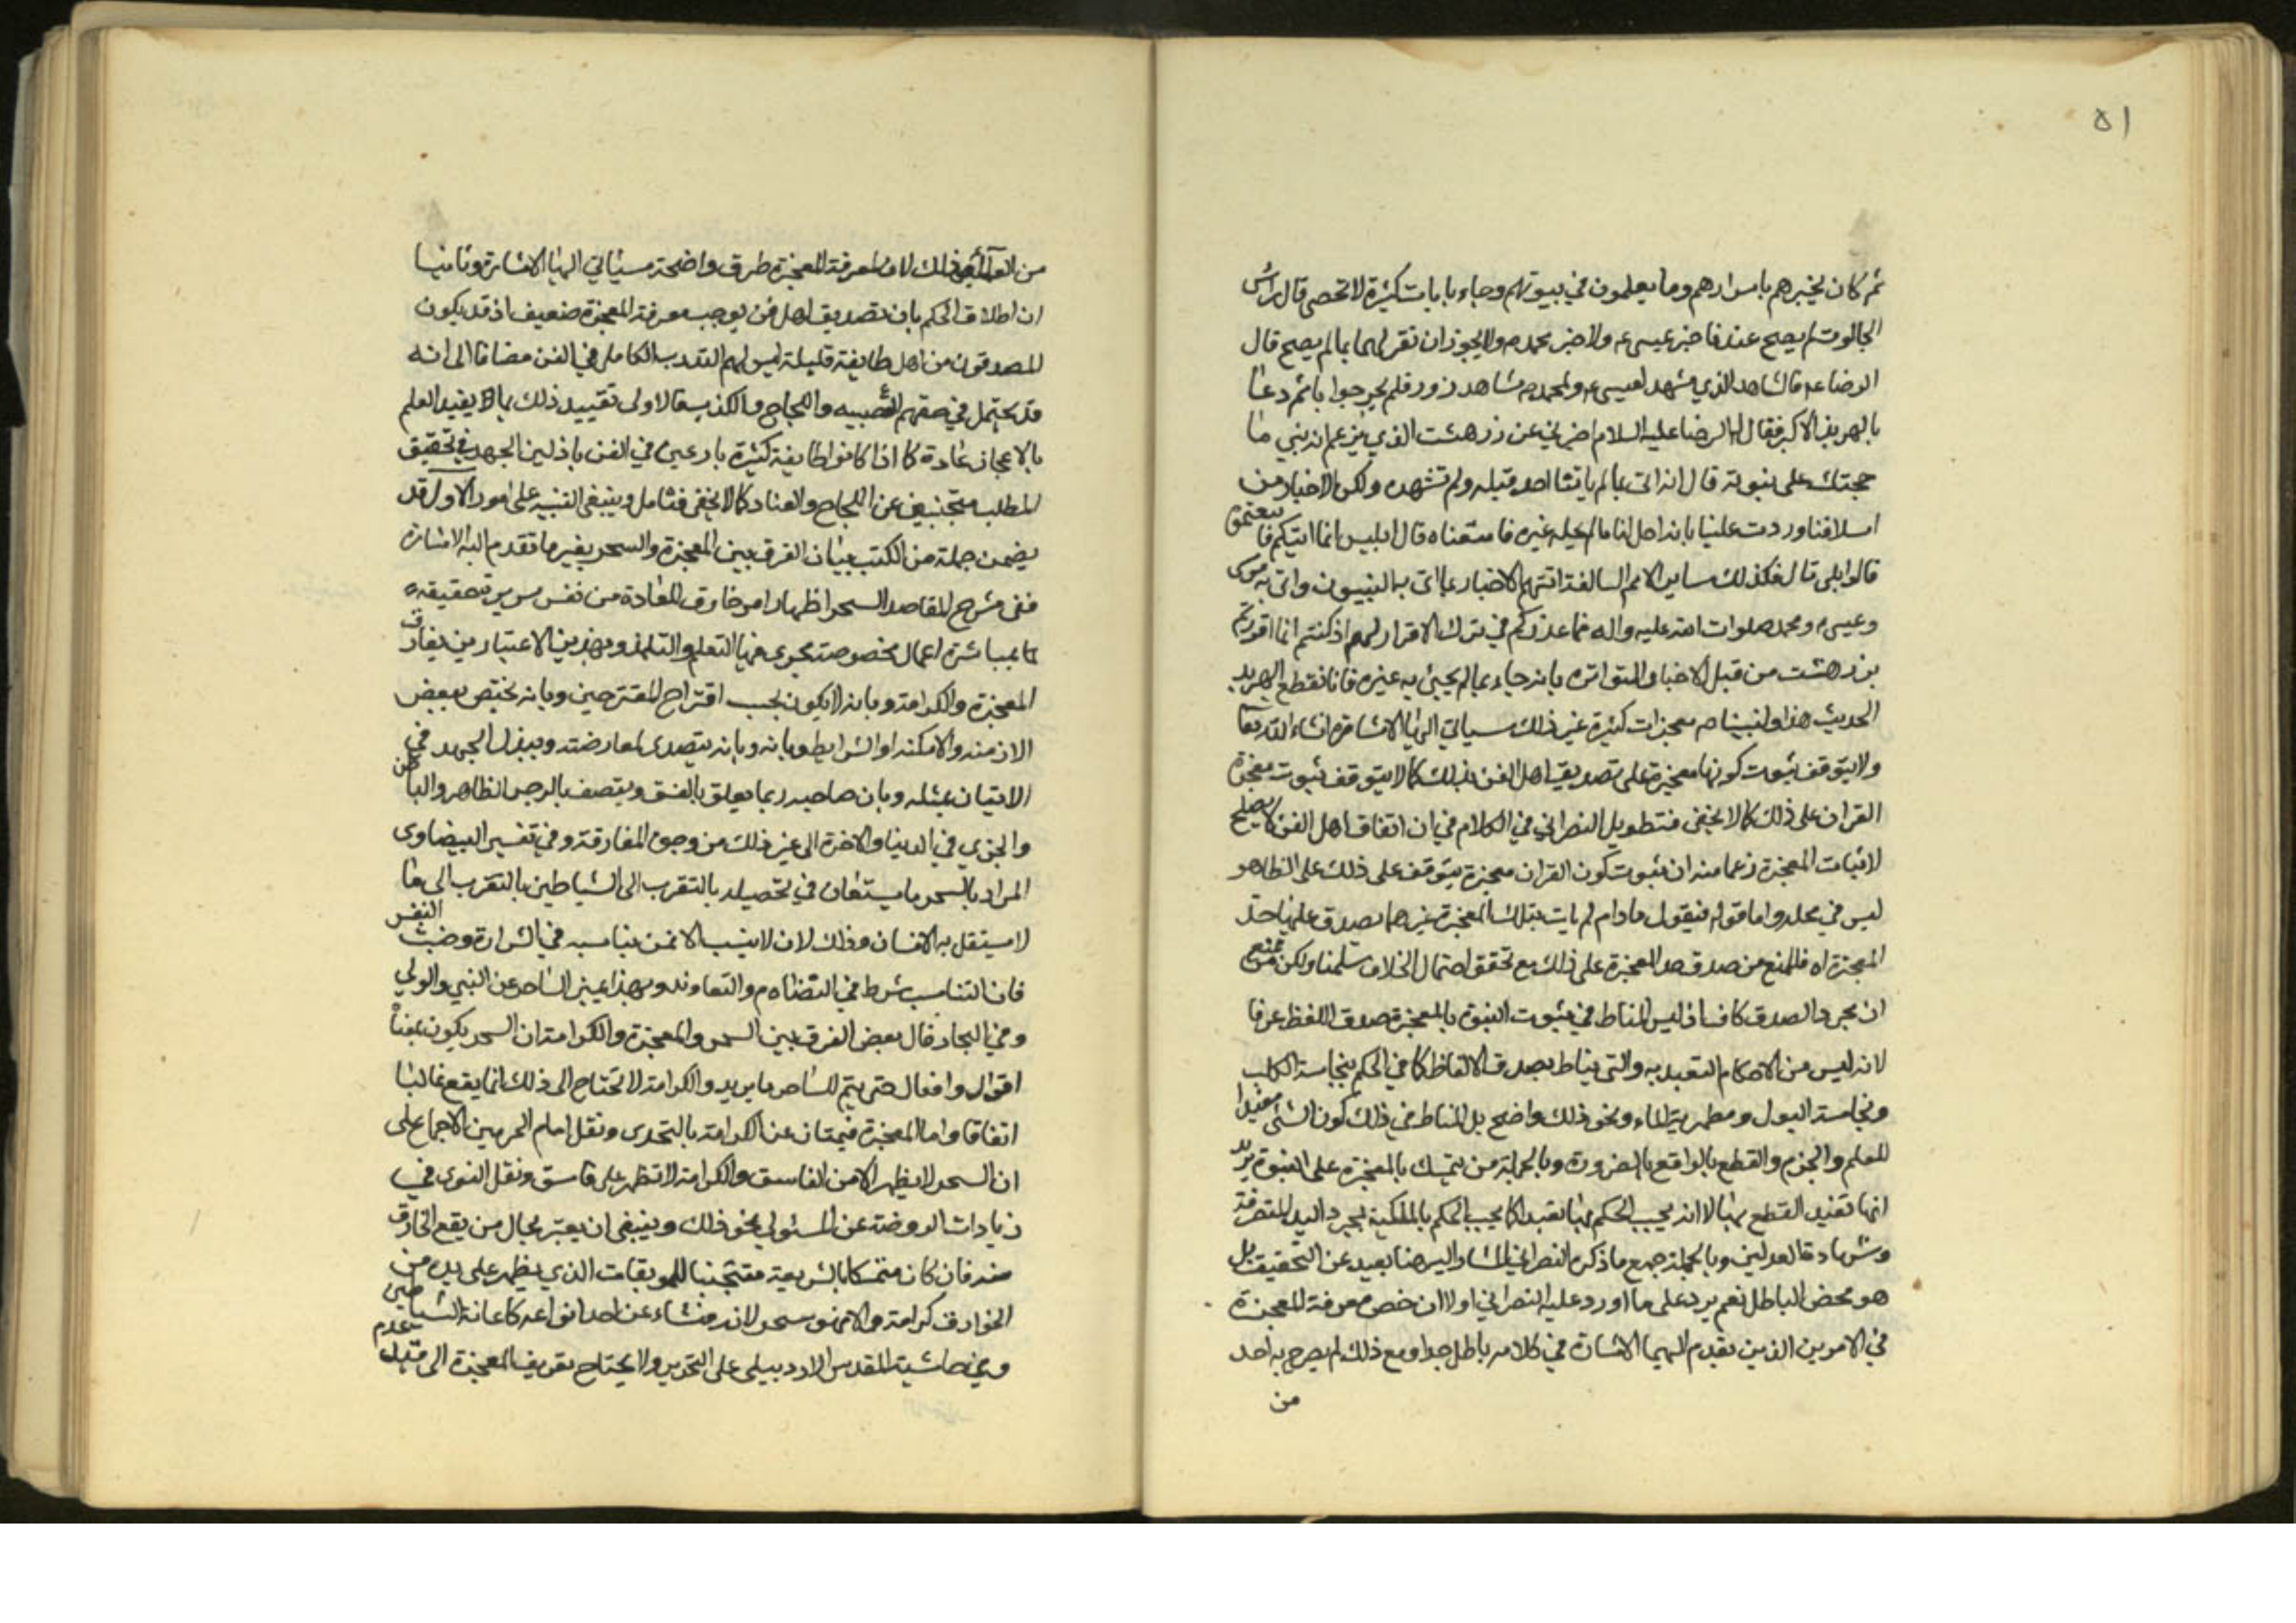 ٥١
ثم كان يخبرهم باسرارهم وما يعلمون في بيوتهم وجاء بايات كثيرة لا تحصى قال راس
الجالوت لم يصح عندنا خبر عيسى ع ولا خبر محمد ص ولا يجوز ان نقر لهما بما لم يصح قال
الرضا ع فالشاهد الذي شهد لعيسى ع ولمحمد ص شاهد زور فلم يحر جوابا ثم دعا
بالهربذ الاكبر فقال له الرضا عليه السلام اخبرني عن زرهشت الذي يزعم انه نبي ما
حجتك على نبوته قال انه اتى بما لم ياتنا احد قبله ولم تشهده ولكن الاخبار من
اسلافنا وردت علينا بانه احل لنا ما لم يحله غيره فاتبعناه قال افليس انما اتتكم الاخبار فاتبعتموه
قالوا بلى قال فكذلك ساير الامم السالفة اتتهم الاخبار بما اتى به النبيون واتى به موسى
وعيسى ع ومحمد صلوات الله عليه واله فما عذركم في ترك الاقرار لهم اذ كنتم انما اقررتم
بزرهشت من قبل الاخبار المتواترة بانه جاء بما لم يجئ به غيره فانقطع الهربذ
الحديث هذا ولنبينا ص معجزات كثيرة غير ذلك سياتي اليها الاشارة انشاء الله تعالى
ولا يتوقف ثبوت كونها معجزة على تصديق اهل الفن بذلك كما لا يتوقف ثبوت معجزة
القران على ذلك كما لا يخفى فتطويل النصراني في الكلام في ان اتفاق اهل الفن لا يصلح
لاثبات المعجزة زعما منه ان ثبوت كون القران معجزة يتوقف على ذلك على الظاهر
ليس في محله واما قوله فيقول مادام لم يات بتلك المعجزة غيرهما يصدق عليها حد
المعجزة اه فللمنع من صدق حد المعجزة على ذلك مع تحقق احتمال الخلاف سلمنا ولكن نمنع من
ان مجرد الصدق كاف اذ ليس المناط في ثبوت النبوة بالمعجزة صدق اللفظ عرفا
لانه ليس من الاحكام التعبدية والتي يناط بصدق الالفاظ كما في الحكم بنجاسة الكلب
ونجاسة البول ومطهرية الماء ونحو ذلك واضح بل المناط في ذلك كون الشئ مفيدا
للعلم والجزم والقطع بالواقع بالضرورة وبالجملة من يتمسك بالمعجزة على النبوة يريد
انها تفيد القطع بها لا انه يجب الحكم بها تعبدا كما يجب الحكم بالملكية بمجرد اليد المتصرفة
وشهادة العدلين وبالجملة جميع ما ذكره النصراني المشار اليه هنا بعيد عن التحقيق بل
هو محض الباطل نعم يرد على ما اورد عليه النصراني اولا ان خص معرفة المعجزة
في الامرين الذين تقدم اليهما الاشارة في كلامه باطل جدا ومع ذلك لم يصرح به احد
من
من العلماء ذلك لان لمعرفة المعجزة طرق واضحة سياتي اليها الاشارة وثانيا
ان اطلاق الحكم بان تصديق اهل فن يوجب معرفة المعجزة ضعيف اذ قد يكون
المصدقون من اهل طايفة قليلة ليس لهم التدرب الكامل في الفن مضافا الى انه
قد يحتمل في حقهم العصبيه واللجاج والكذب فالاولى تقييد ذلك بما يفيد العلم
بالاعجاز عادة كما اذا كانوا طايفة كثيرة بارعين في الفن باذلين الجهد في تحقيق
المطلب متجنبين عن اللجاج والعناد كما لا يخفى فتامل وينبغى التنبيه على امور الاول قد
يضمن جملة من الكتب بيان الفرق بين المعجزة والسحر بغير ما تقدم اليه الاشارة
ففى شرح المقاصد السحر اظهار امر خارق للعادة من نفس شريرة خبيثة
بمباشرة اعمال مخصوصة يجرى فيها التعلم والتلمذ وبهذين الاعتبارين يفارق
المعجزة والكرامة وبانه لا يكون بحسب اقتراح المقترحين وبانه يختص ببعض
الازمنه والامكنه او الشرايط وبانه وبانه يتصدى لمعارضته ويبذل الجهد في
الاتيان بمثله وبان صاحبه ربما يعلق بالفسق ويتصف بالرجس الظاهر والباطن
والخزي في الدنيا والاخرة الى غير ذلك من وجوه المفارقة وفي تفسير البيضاوى
المراد بالسحر ما يستعان في تحصيله بالتقرب الى الشياطين بالتقرب الى ما
لا يستقل به الانسان وذلك لان لا ينسب الا لمن يناسبه في الشرارة وخبث النفس
فان التناسب شرط في التضام والتعاون وبهذا يميز الساحر عن النبي والولي
وفي البحار قال بعض الفرق بين السحر والمعجزة والكرامة ان السحر يكون بمعناة
اقوال وافعال حتى يتم للساحر ما يريد والكرامة لا تحتاج الى ذلك انما يقع غالبا
اتفاقا واما المعجزة فيمتاز عن الكرامة بالتحدى ونقل امام الحرمين الاجماع على
ان السحر لا يظهر الا من الفاسق والكرامة لا تظهر على فاسق ونقل النووى في
زيادات الروضة عن المتولي نحو ذلك وينبغى ان يعتبر بحال من يقع الخارق
منه فان كان متمسكا بالشريعة متجنبا للموبقات الذي يظهر على يده من
الخوارق كرامة والا فهو سحر لانه منشاء عن احد انواعه كاعانة الشياطين
وفي حاشية المقدس الاردبيلى على التجريد ولا يحتاج تعريف المعجزة الى قيد عدم